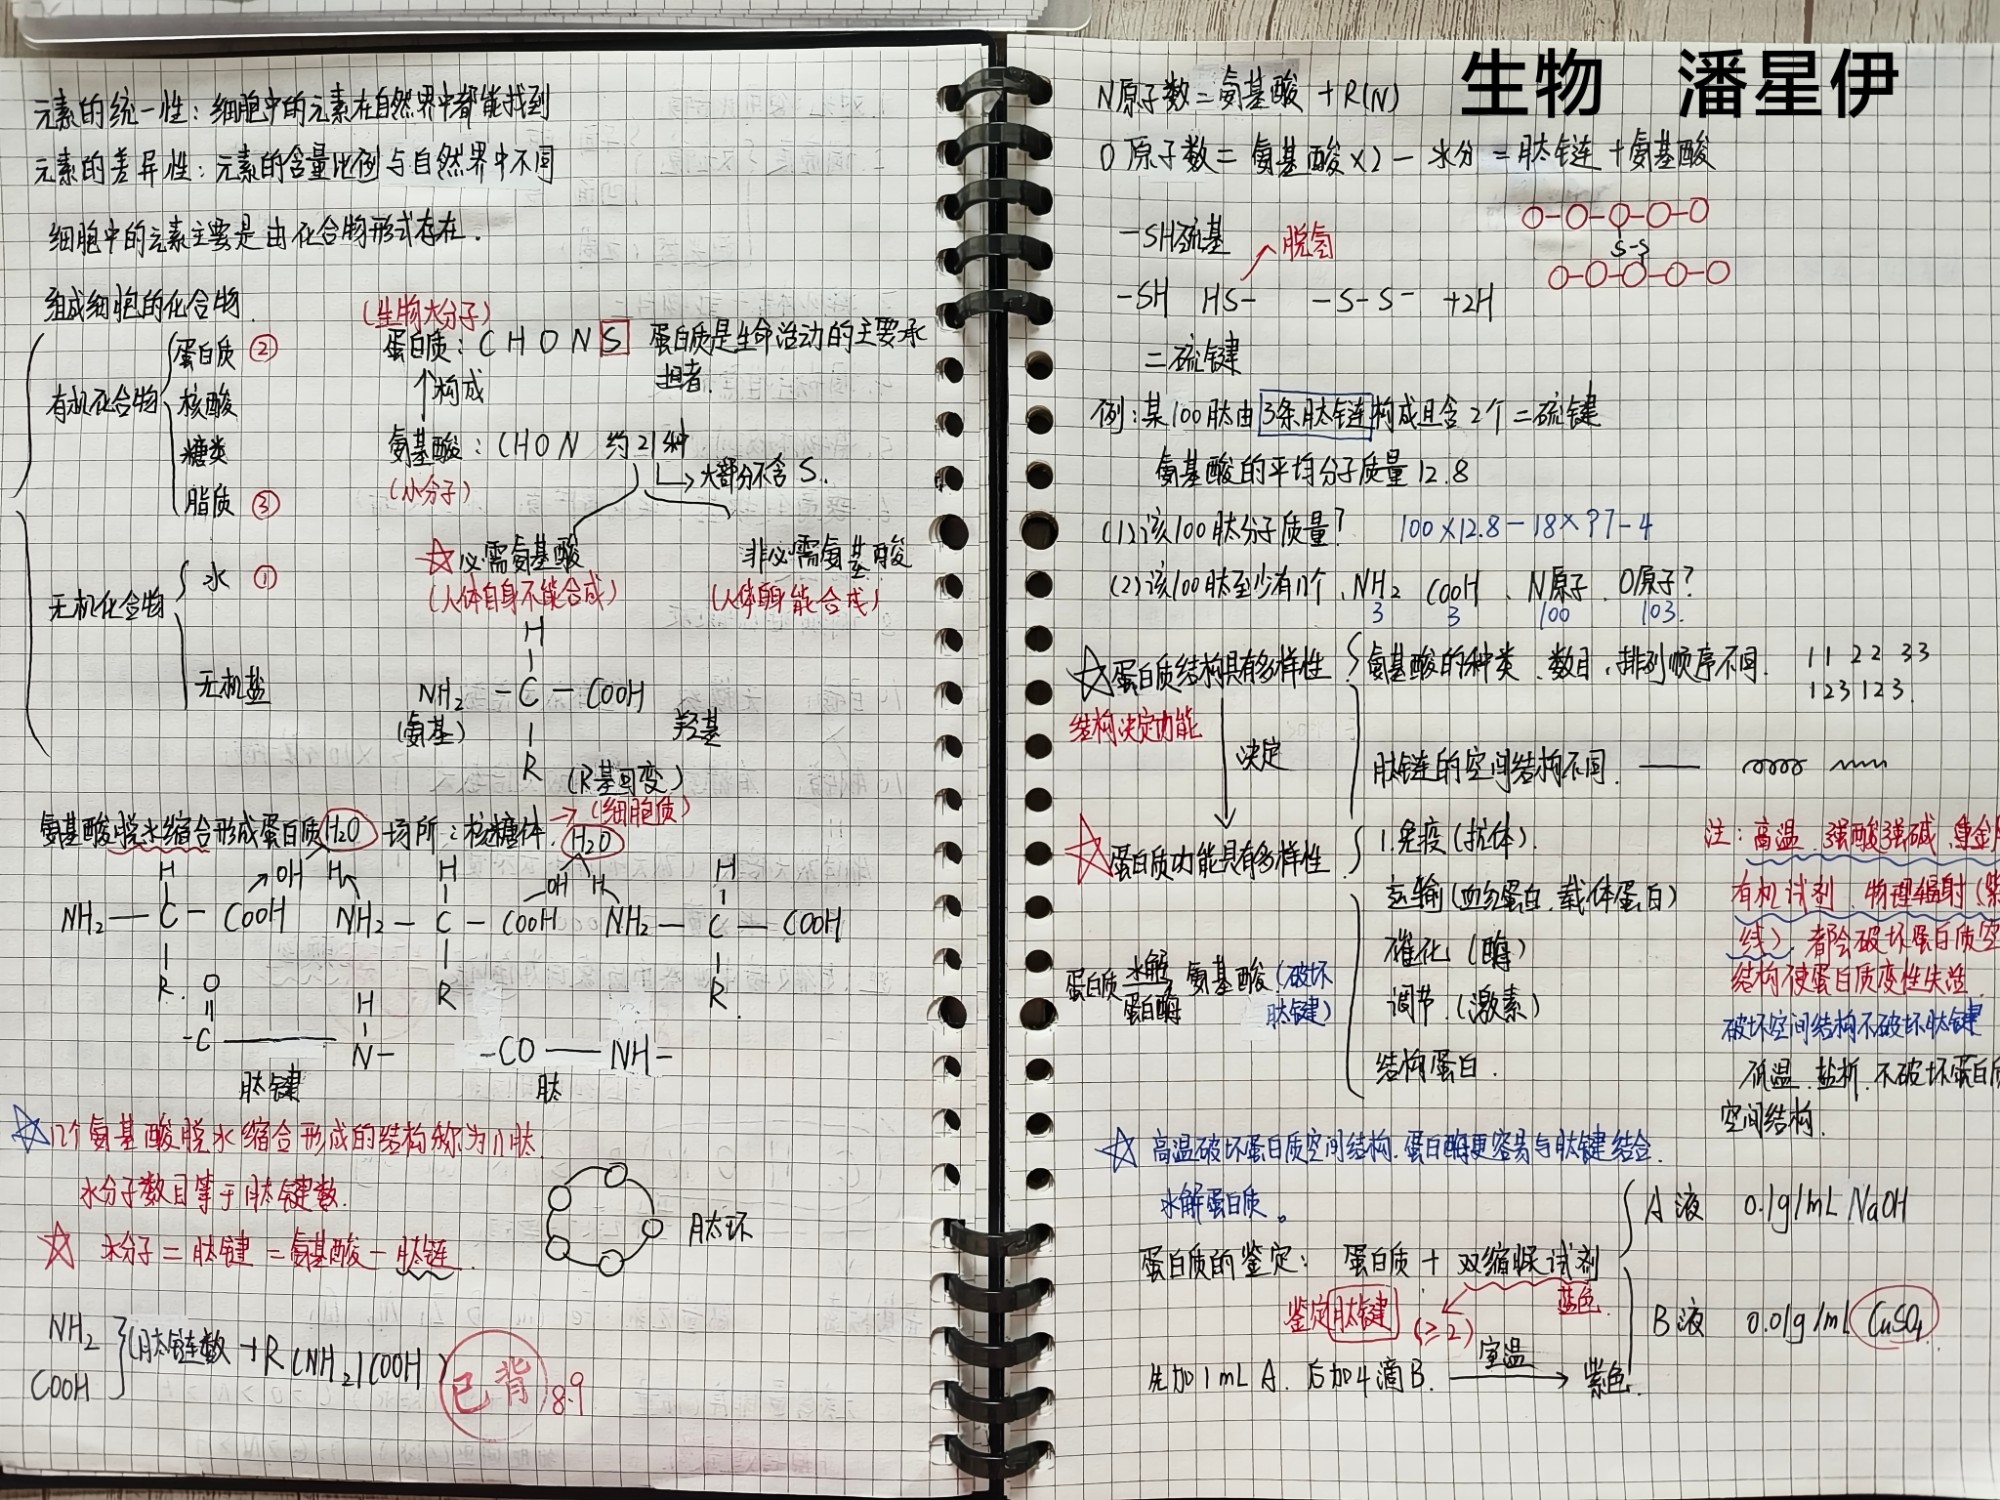 生物 潘星伊
元素的统一性：细胞中的元素在自然界中都能找到
元素的差异性：元素的含量比例与自然界中不同
细胞中的元素主要是由化合物形式存在.
组成细胞的化合物.
有机化合物
蛋白质 ②
核酸
糖类
脂质 ③
无机化合物
水 ①
无机盐
(生物大分子)
蛋白质：C H O N S 蛋白质是生命活动的主要承
担者.
↑构成
氨基酸：CHON 约21种
(小分子)
→大部分不含 S.
☆必需氨基酸 非必需氨基酸
(人体自身不能合成) (人体自身能合成)
H
NH₂ - C - COOH
(氨基) 羟基
R (R基可变)
氨基酸脱水缩合形成蛋白质 H₂O 场所：核糖体. →(细胞质)
H₂O
H OH H H OH H H
NH₂ — C — COOH NH₂ — C — COOH NH₂ — C — COOH
R. R R.
O H
-C —— N- -CO — NH-
肽键 肽
☆ n个氨基酸脱水缩合形成的结构称为n肽.
水分子数目等于肽键数.
☆ 水分子 = 肽键 = 氨基酸 - 肽链.
肽环
NH₂
COOH
肽链数 + R(NH₂/COOH)
已背 8.9
N原子数 = 氨基酸 + R(N)
O原子数 = 氨基酸×2 - 水分 = 肽链 + 氨基酸
-SH巯基 脱氢
S-S
-SH HS- -S-S- +2H
二硫键
例：某100肽由3条肽链构成且含2个二硫键
氨基酸的平均分子质量12.8
(1)该100肽分子质量? 100×12.8-18×97-4
(2)该100肽至少有几个、NH₂ COOH、N原子、O原子?
3 3 100 103.
☆蛋白质结构具有多样性
氨基酸的种类、数目、排列顺序不同. 11 22 33
123123.
结构决定功能
决定
肽链的空间结构不同.
☆蛋白质功能具有多样性
1.免疫(抗体).
运输(血红蛋白.载体蛋白)
催化(酶)
调节.(激素)
结构蛋白.
蛋白质 水解 氨基酸.(破坏
蛋白酶 肽键)
注：高温、强酸强碱、重金
有机试剂、物理辐射(紫
线)、都会破坏蛋白质空
结构使蛋白质变性失活.
破坏空间结构不破坏肽键
低温.盐析.不破坏蛋白质
空间结构.
☆ 高温破坏蛋白质空间结构.蛋白酶更容易与肽键结合.
水解蛋白质。
蛋白质的鉴定：蛋白质 + 双缩脲试剂
A液 0.1g/mL NaOH
B液 0.01g/ml CuSO₄
鉴定肽键 (≥2) 蓝色
先加1mL A. 后加4滴B. 室温 → 紫色.